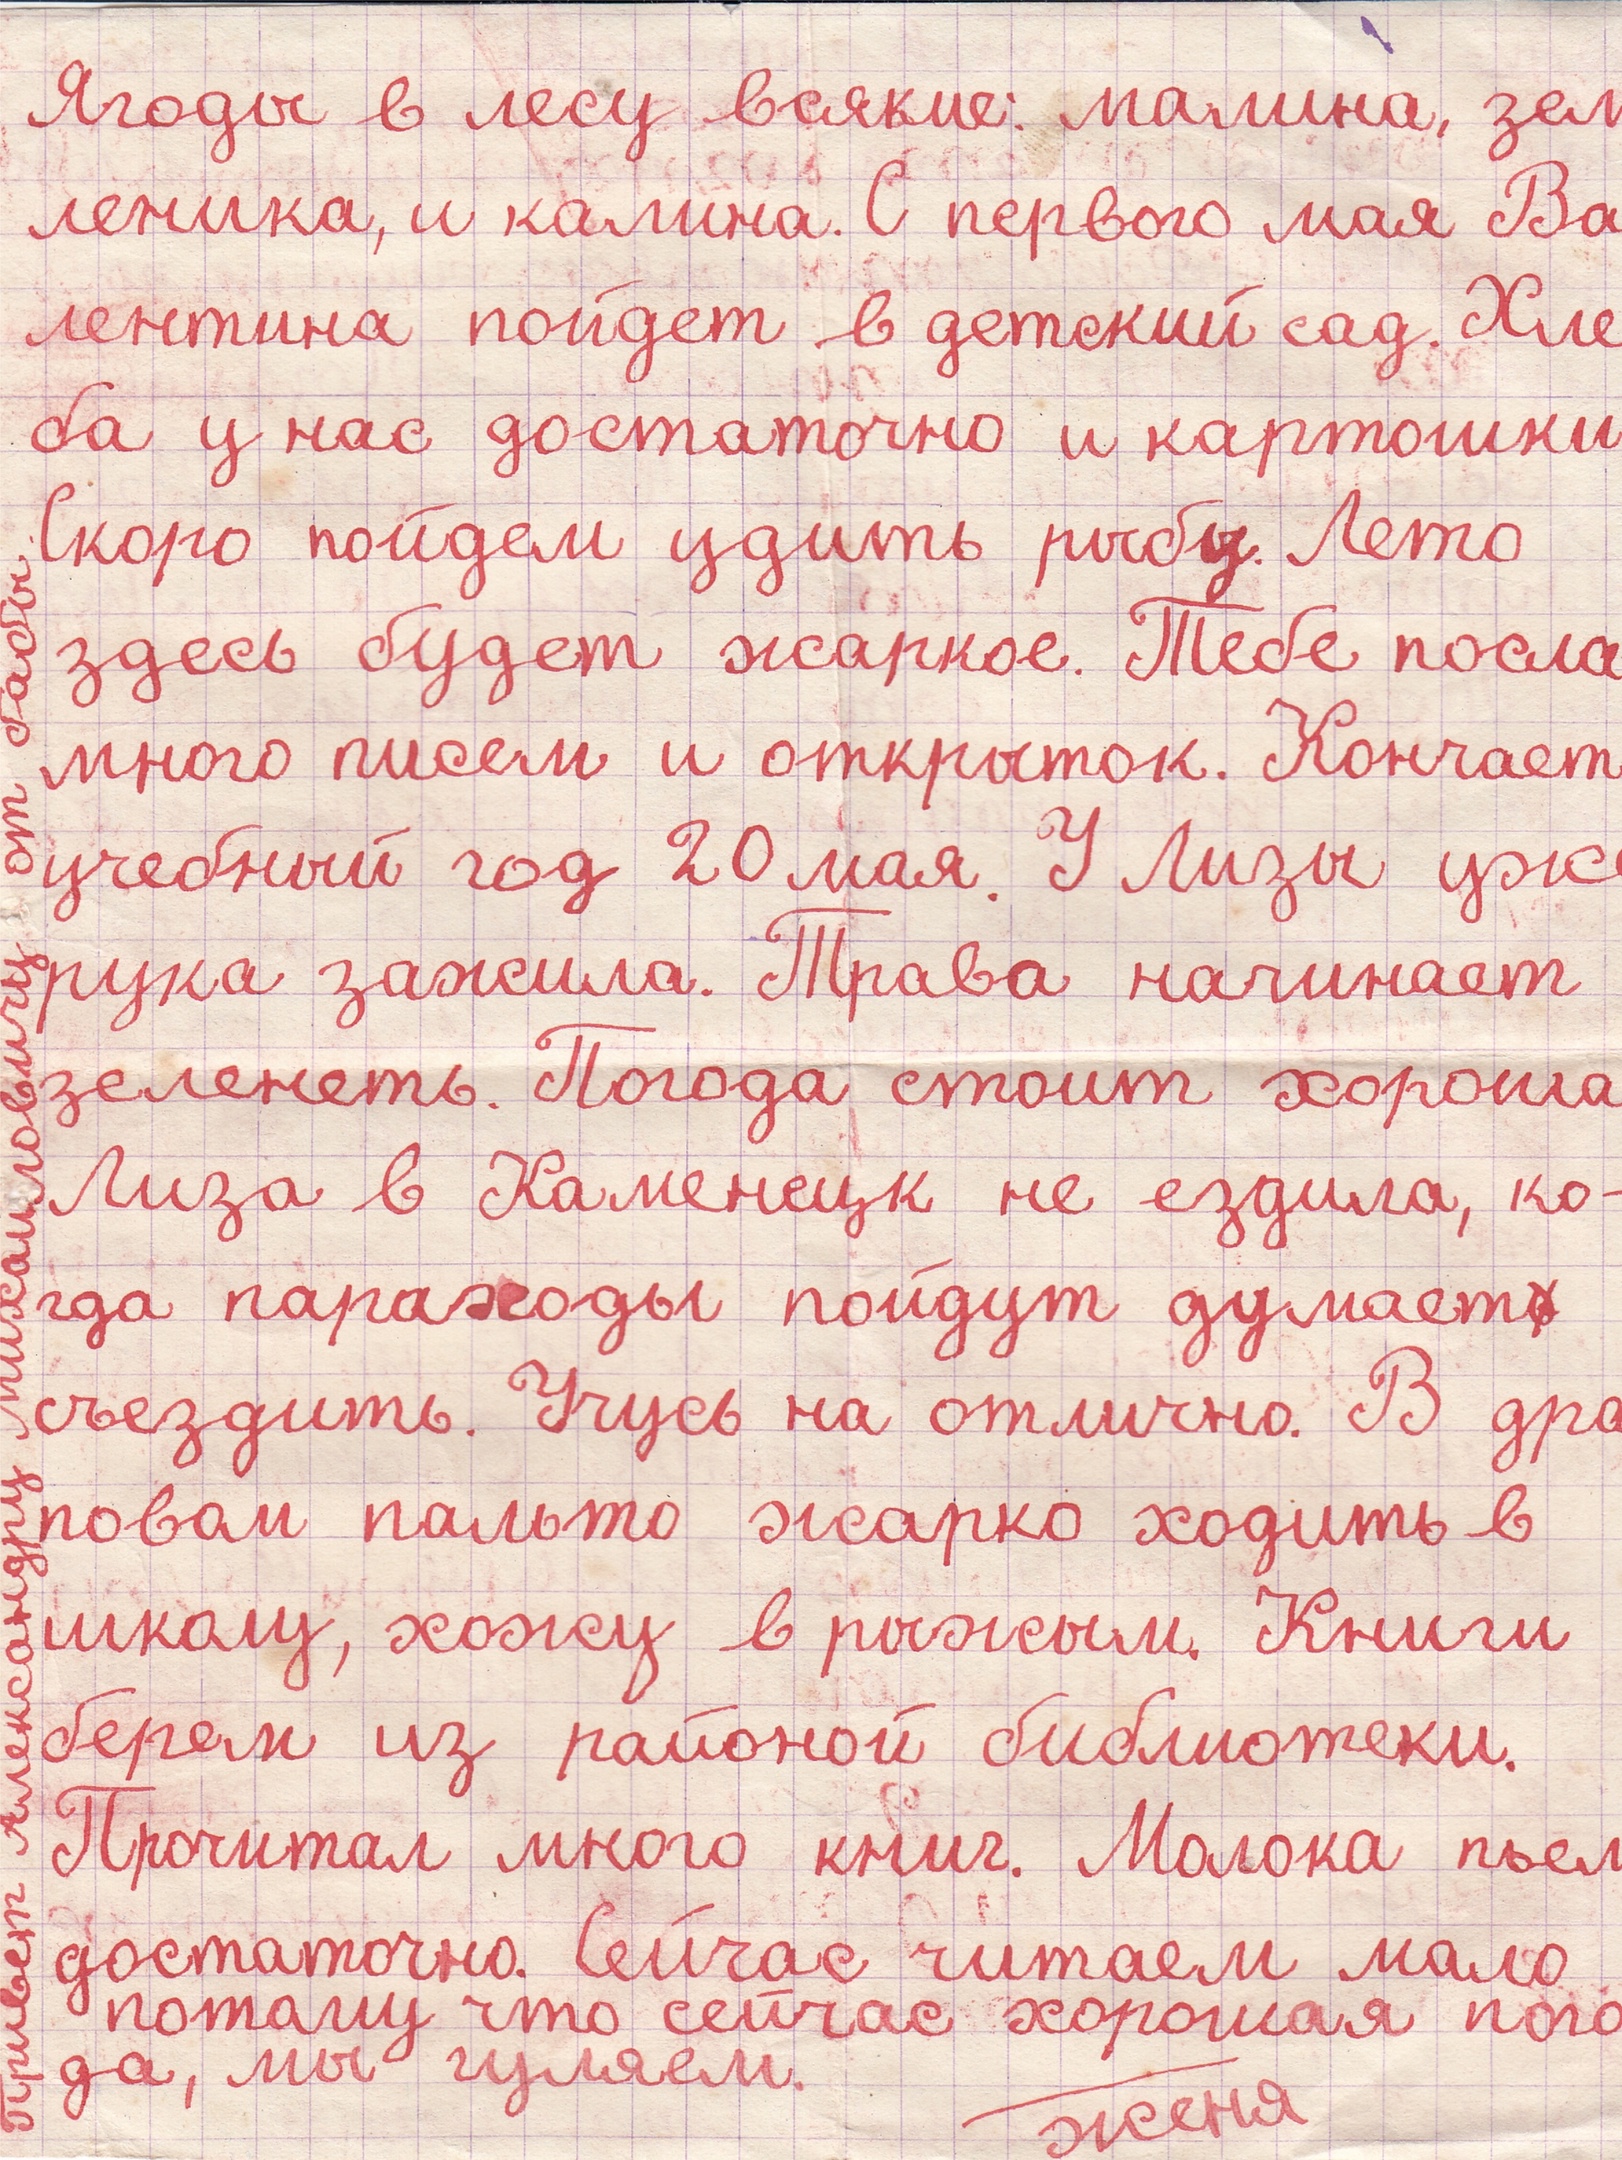 Ягоды в лесу всякие: малина, зем
леника, и калина. С первого мая Ва
лентина пойдет в детский сад. Хле
ба у нас достаточно и картошки
Скоро пойдем удить рыбу. Лето
здесь будет жаркое. Тебе посла
много писем и открыток. Кончает
учебный год 20 мая. У Лизы уже
рука зажила. Трава начинает
зеленеть. Погода стоит хороша
Лиза в Каменсцк не ездила, ко-
гда параходы пойдут думает
съездить. Учусь на отлично. В дра
повам пальто жарко ходить в
школу, хожу в рыжым. Книги
берем из районой библиотеки.
Прочитал много книг. Молока пьем
достаточно. Сейчас читаем мало
потому что сейчас хорошая пого
да, мы гуляем.
Женя
Привет Александру михаиловичу от бабы.